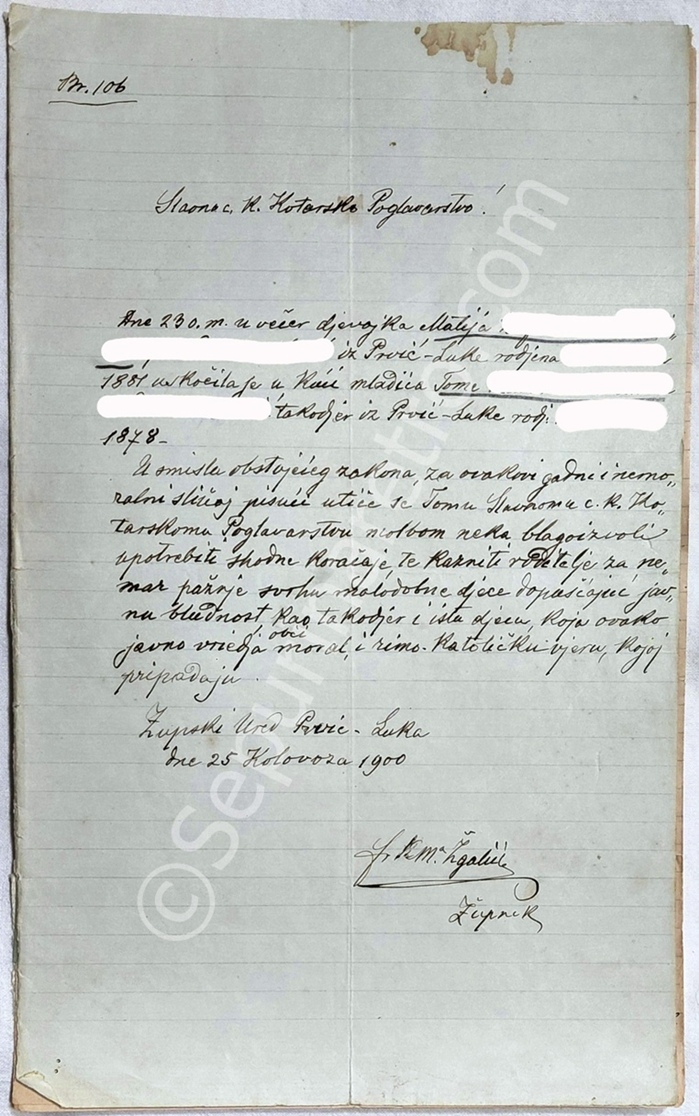 Br. 106
Slavno c. k. Kotarsko Poglavarstvo!
Dne 23 o. m. u večer djevojka Matija
iz Prvić-Luke rodjena
1881 uskočila je u kući mladića Tome
takodjer iz Prvić-Luke rodj.
1878-
U smislu obstojećeg zakona, za ovakovi gadni i nemo„
ralni slučaj pisući utiče se Tomu Slavnomu c. k. Ko„
tarskomu Poglavarstvu molbom neka blagoizvoli
upotrebiti shodne koračaje, te kazniti roditelje za ne„
mar pažnje svrhu malodobne djece dopašćajuć jav„
nu bludnost, kao takodjer i istu djecu, koja ovako
javno vriedja obći moral, i rimo-katoličku vjeru, kojoj
pripadaju.
Župski Ured Prvić-Luka
dne 25 Kolovoza 1900
Župnik
©Sepurinaretro.com